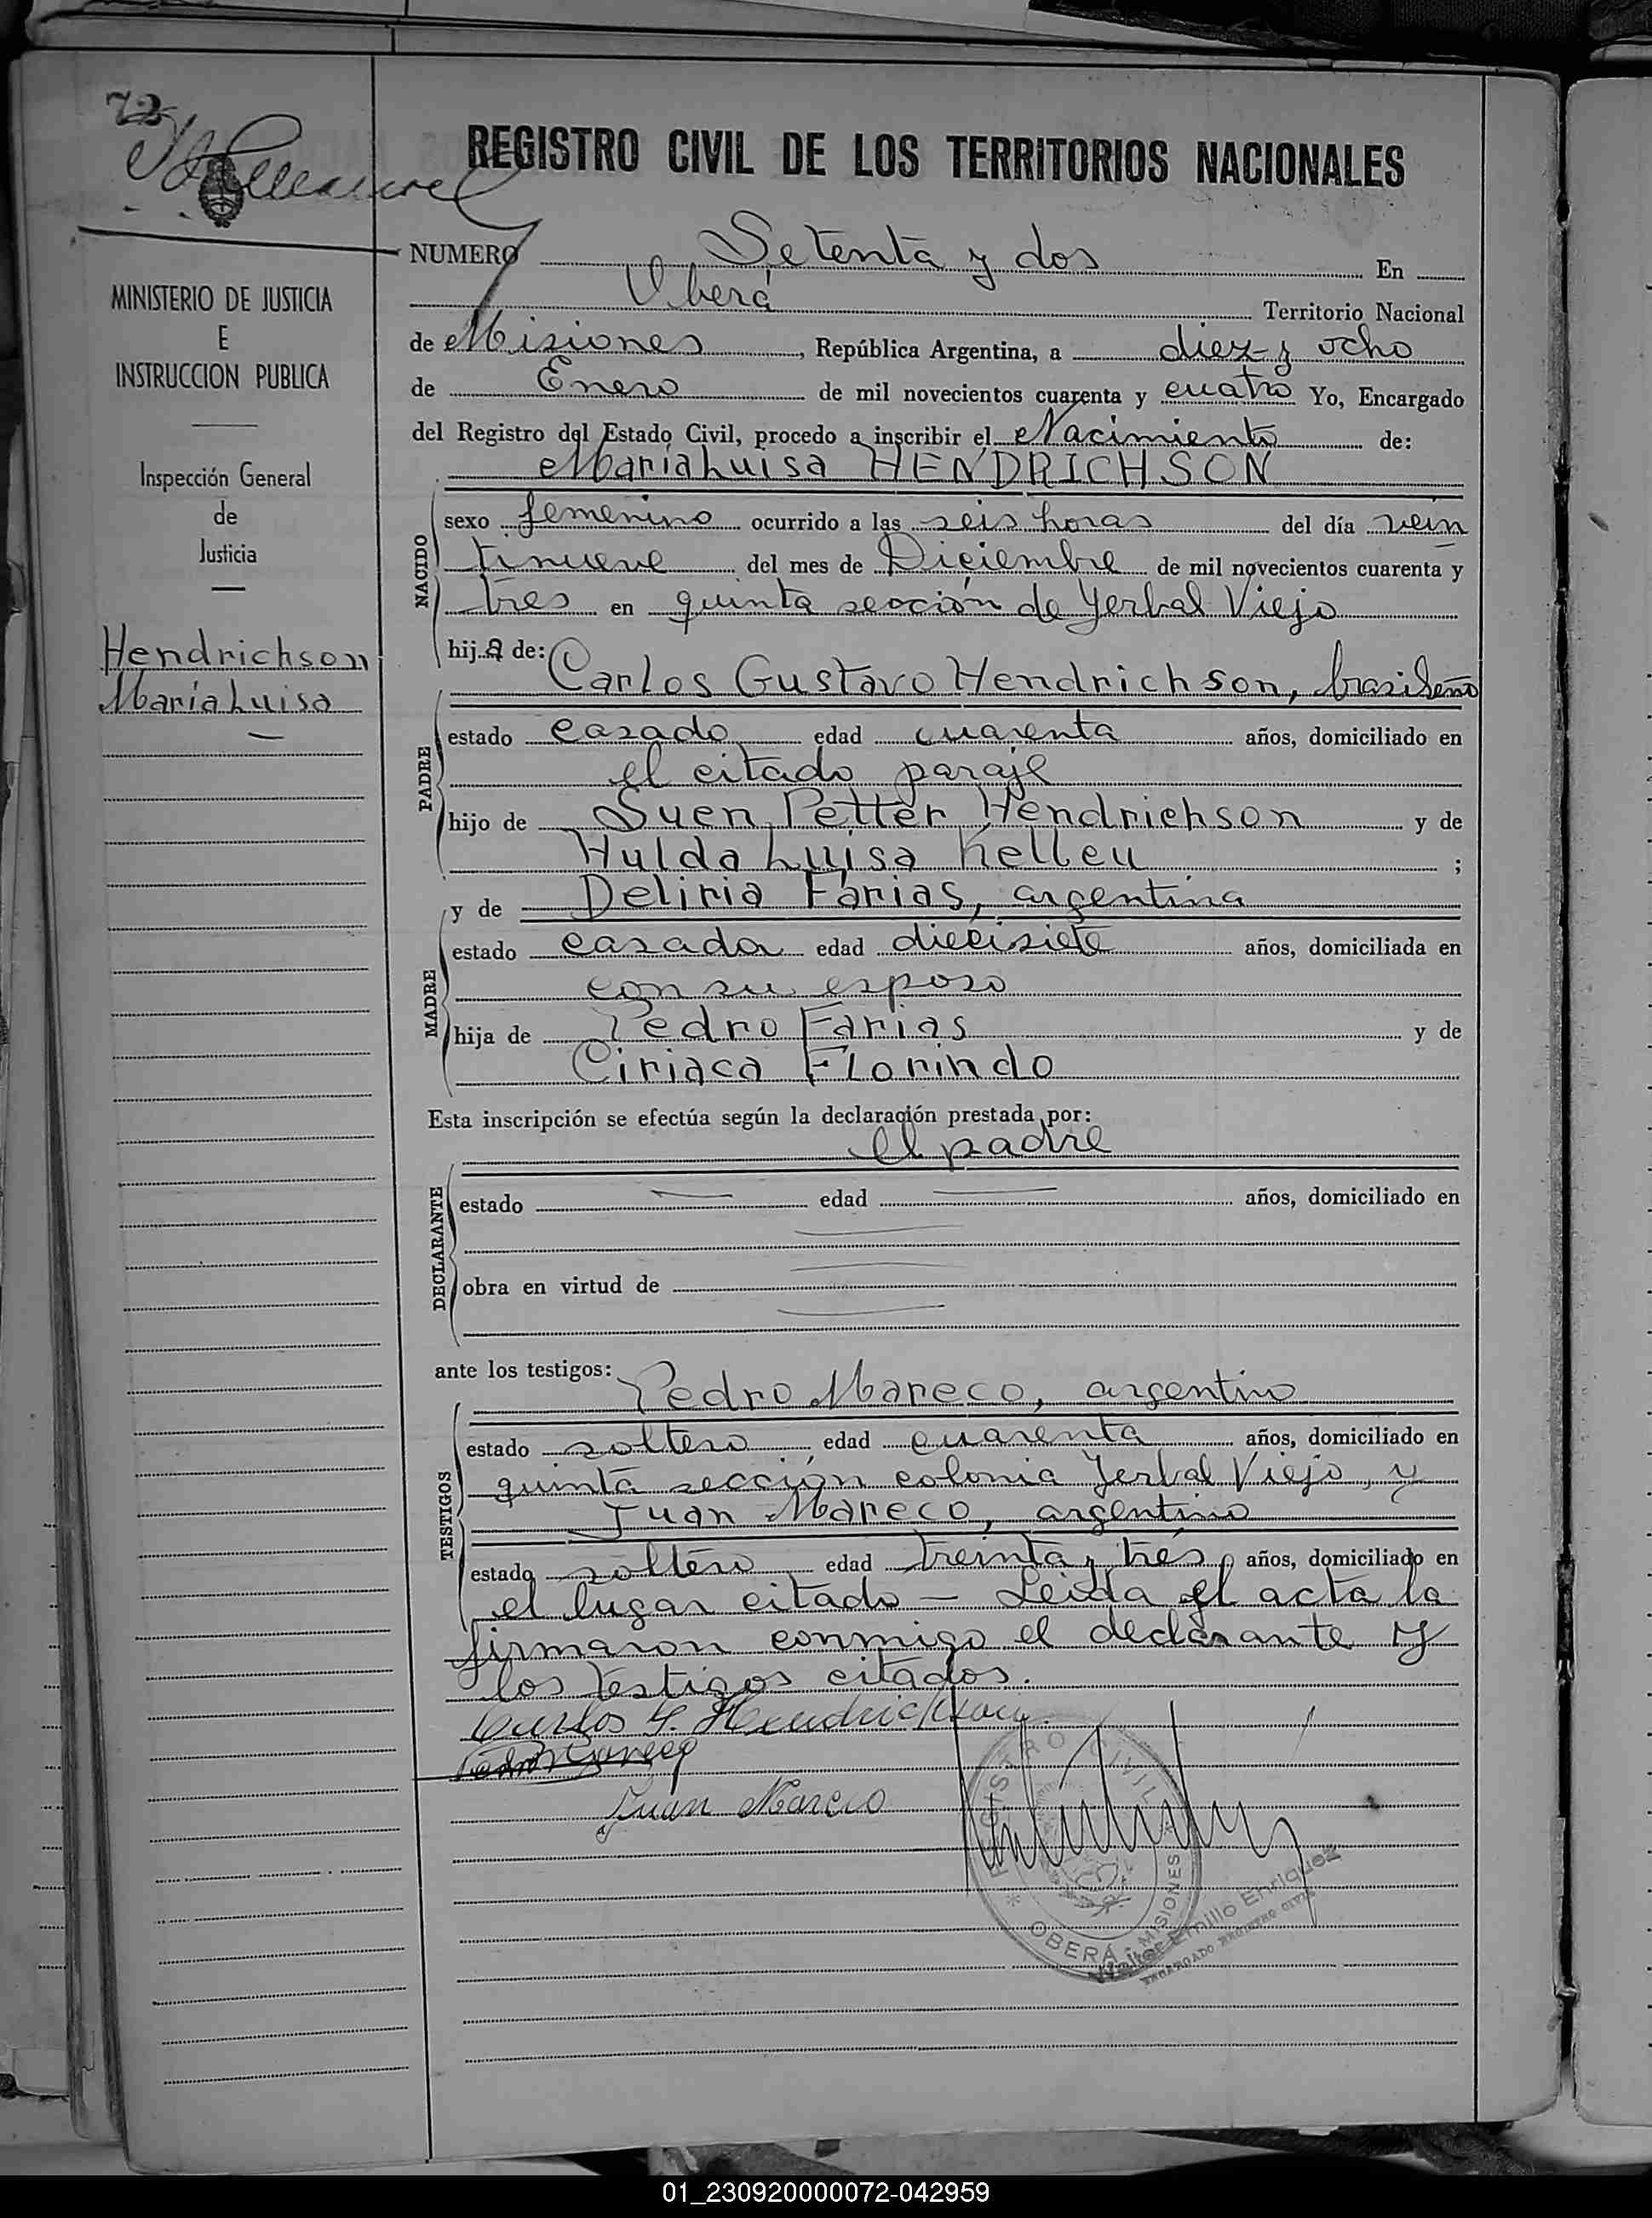 72
REGISTRO CIVIL DE LOS TERRITORIOS NACIONALES
NUMERO Setenta y dos En
Oberá Territorio Nacional
de Misiones, República Argentina, a diez y ocho
de Enero de mil novecientos cuarenta y cuatro Yo, Encargado
del Registro del Estado Civil, procedo a inscribir el Nacimiento de:
María Luisa HENDRICHSON
MINISTERIO DE JUSTICIA
E
INSTRUCCION PUBLICA
Inspección General
de
Justicia
Hendrichson
María Luisa
NACIDO
sexo femenino ocurrido a las seis horas del día vein
tinueve del mes de Diciembre de mil novecientos cuarenta y
tres en quinta sección de Yerbal Viejo
hija de:
Carlos Gustavo Hendrichson, brasileño
PADRE
estado casado edad cuarenta años, domiciliado en
el citado paraje
hijo de Suen Petter Hendrichson y de
Hulda Luisa Kelleu ;
y de Deliria Farias, argentina
MADRE
estado casada edad diecisiete años, domiciliada en
con su esposo
hija de Pedro Farias y de
Ciriaca Florindo
Esta inscripción se efectúa según la declaración prestada por:
el padre
DECLARANTE
estado — edad — años, domiciliado en
—
obra en virtud de —
—
ante los testigos:
Pedro Mareco, argentino
TESTIGOS
estado soltero edad cuarenta años, domiciliado en
quinta sección colonia Yerbal Viejo, y
Juan Mareco, argentino
estado soltero edad treinta y tres años, domiciliado en
el lugar citado — Leida el acta la
firmaron conmigo el declarante y
los testigos citados.
Carlos G. Hendrichson
Pedro Mareco
Juan Mareco
REGISTRO CIVIL * OBERÁ MISIONES *
Walter Emilio Enriquez
ENCARGADO REGISTRO CIVIL
01_230920000072-042959